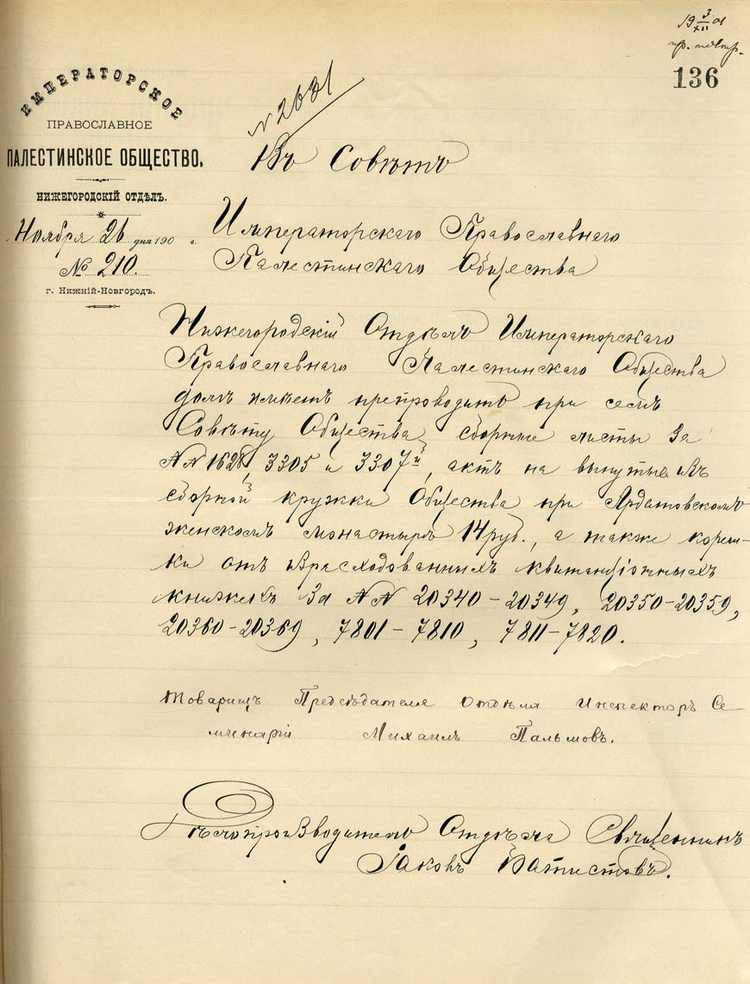 19 3/XII 01
136
№ 2601
ИМПЕРАТОРСКОЕ
ПРАВОСЛАВНОЕ
ПАЛЕСТИНСКОЕ ОБЩЕСТВО.
НИЖЕГОРОДСКІЙ ОТДѢЛЪ.
Ноября 26 дня 190 г.
№ 210.
г. Нижній-Новгородъ.
Въ Совѣтъ
Императорскаго Православнаго
Палестинскаго Общества
Нижегородскій Отдѣлъ Императорскаго
Православнаго Палестинскаго Общества
долгъ имѣетъ препроводить при семъ
Совѣту Общества, сборные листы за
№№ 1628, 3305 и 3307й, актъ на вынутые изъ
сборной кружки Общества при Ардатовскомъ
женскомъ монастырѣ 14 руб., а также кореш-
ки отъ израсходованныхъ квитанціонныхъ
книжекъ за №№ 20340-20349, 20350-20359,
20360-20369, 7801-7810, 7811-7820.
Товарищъ Предсѣдателя Отдѣла Инспекторъ Се-
минаріи Михаилъ Пальмовъ.
Дѣлопроизводитель Отдѣла Священникъ
Іаковъ Батистовъ.